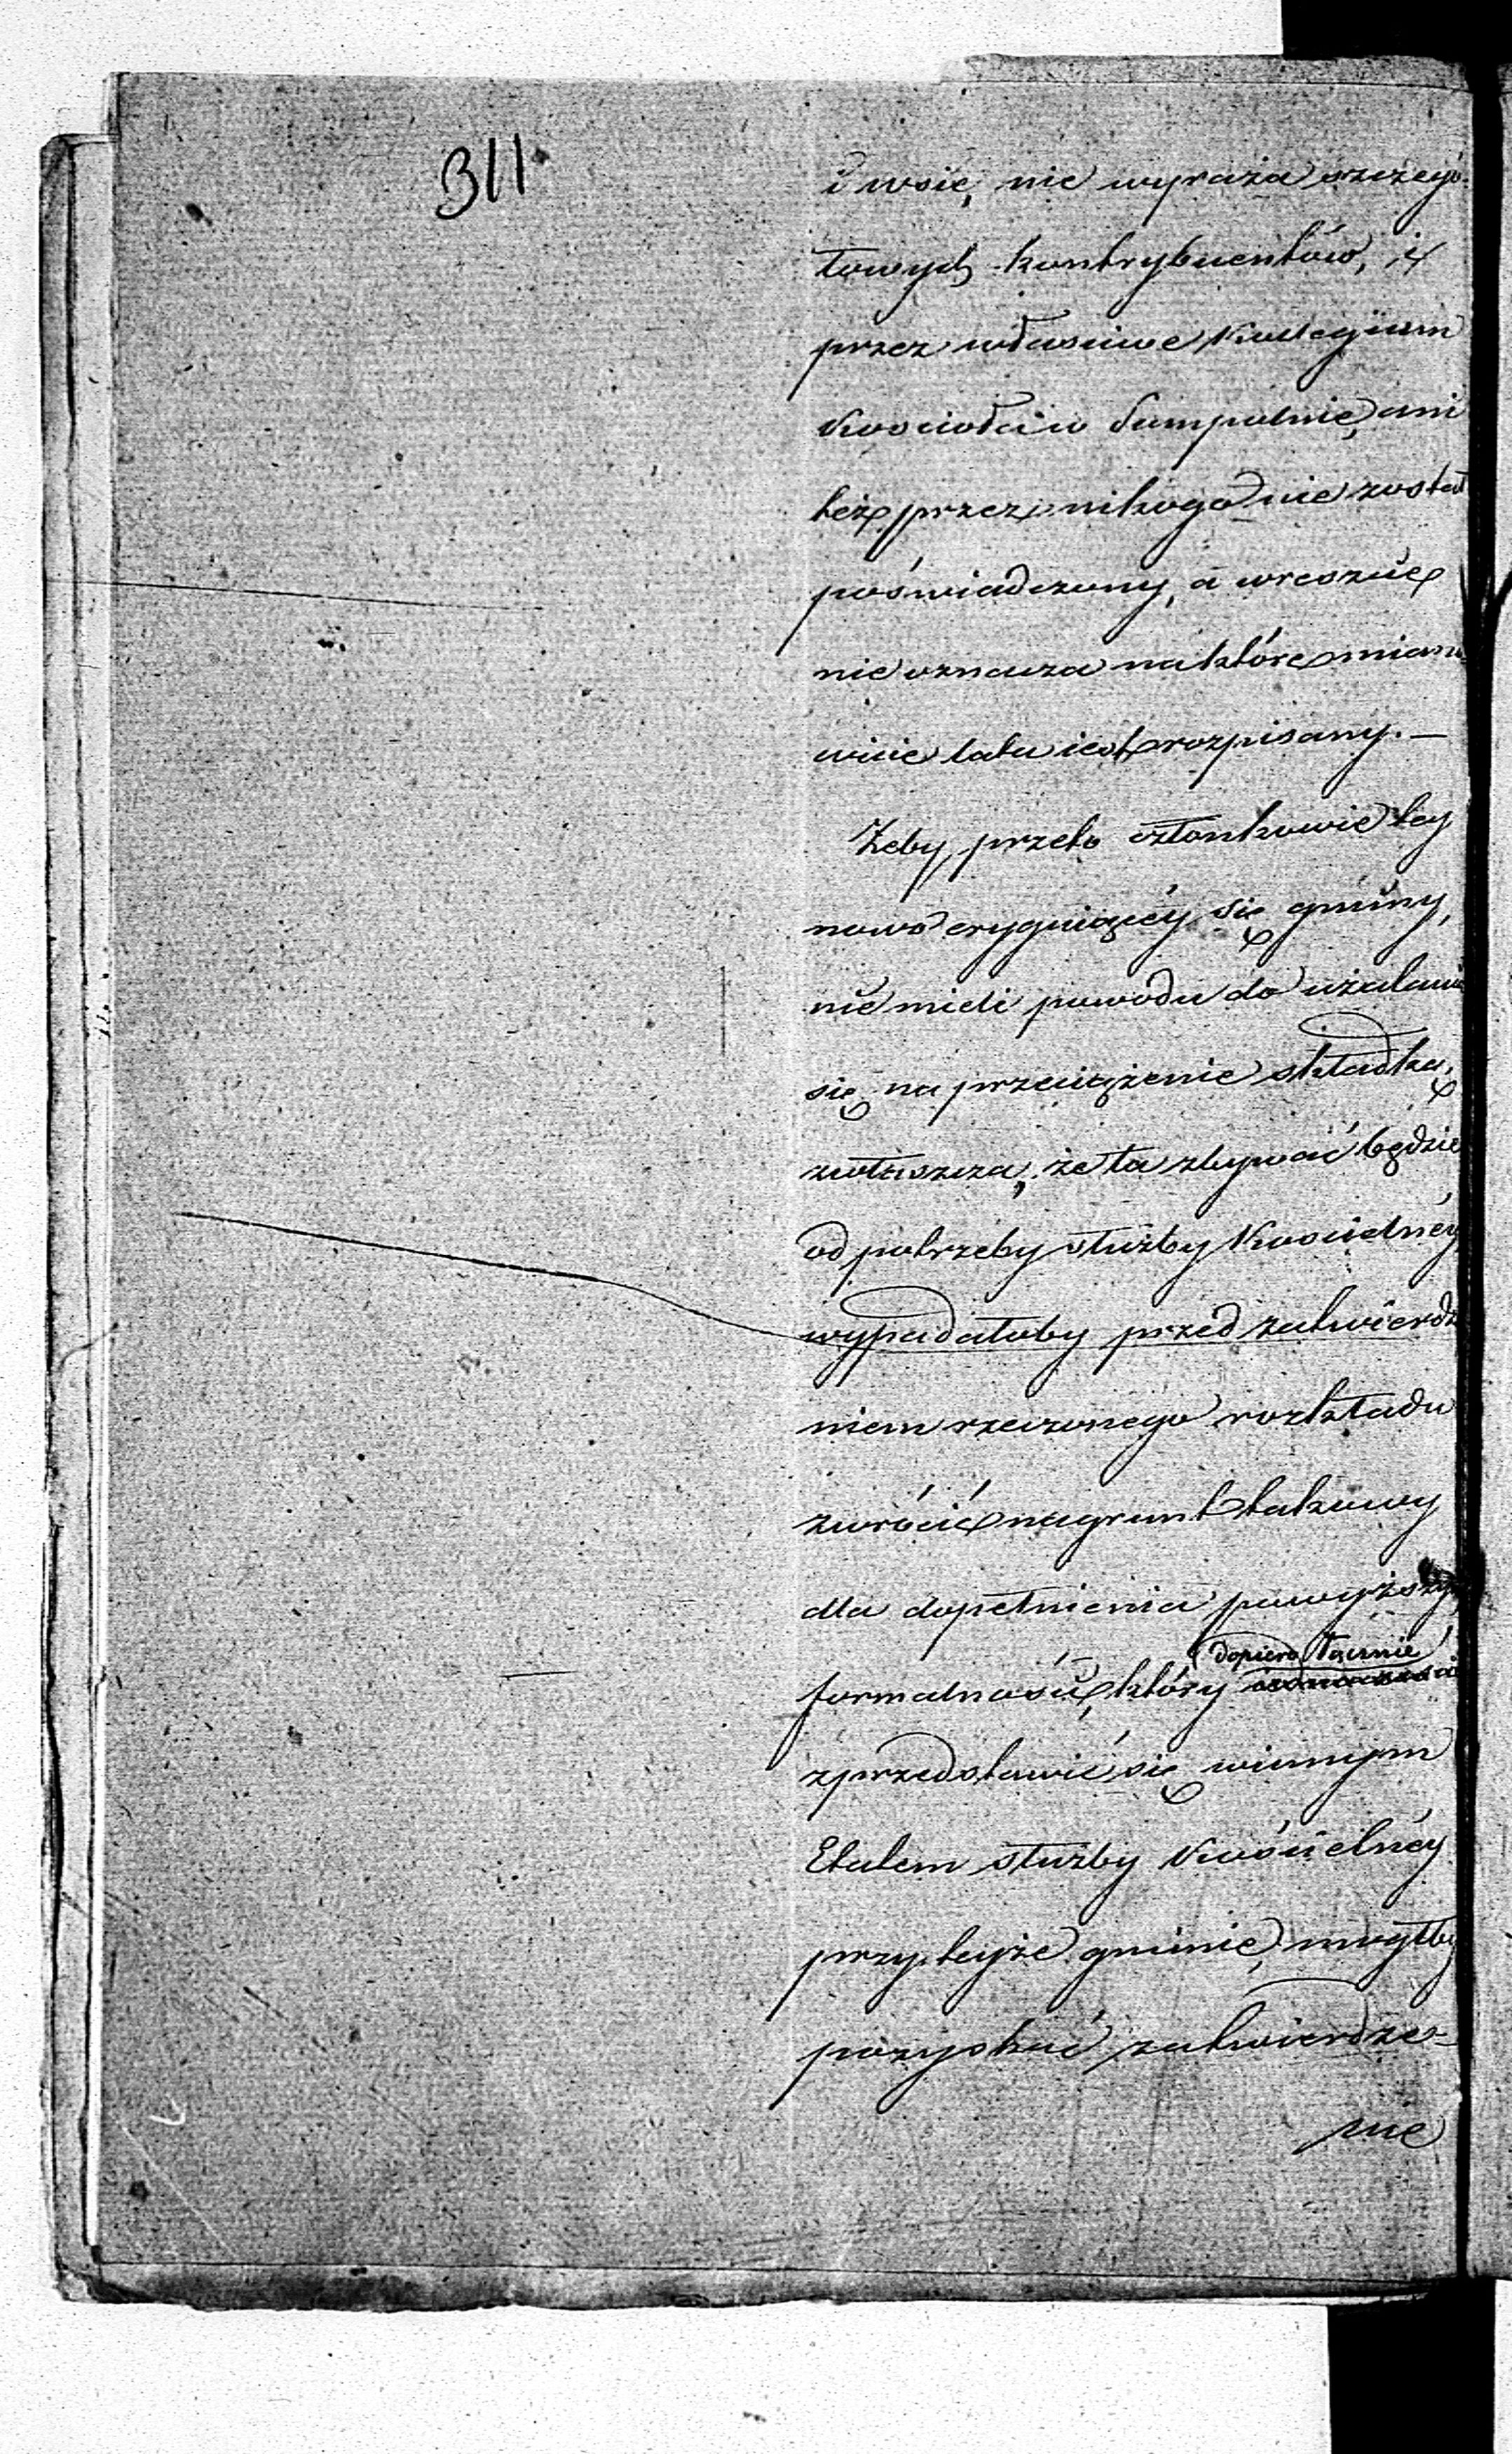 311
i wsie, nie wyraża szczegó-
łowych kontrybuentów, iż
przez właściwe Kollegium
Kościoła w Sompolnie, ani
też przez nikogo nie został
poświadczony, a wreszcie
nie oznacza na które miano
wicie lata iest rozpisany. —
Żeby przeto członkowie tey
nowo erygującéy się gminy,
nie mieli powodu do użalania
się na przeciążenie składką,
zwłaszcza, że ta zbywać będzie
od potrzeby służby Kościelnéy
wypadałoby przed zatwierdze
niem rzeczonego rozkładu
zwrócić na grunt takowy
dla dopełnienia powyższych
formalności, który dopiero łącznie
zprzedstawić się winnym
Etatem służby Kościelnéy
przy teyże gminie, mógłby
pozyskać zatwierdze-
nie